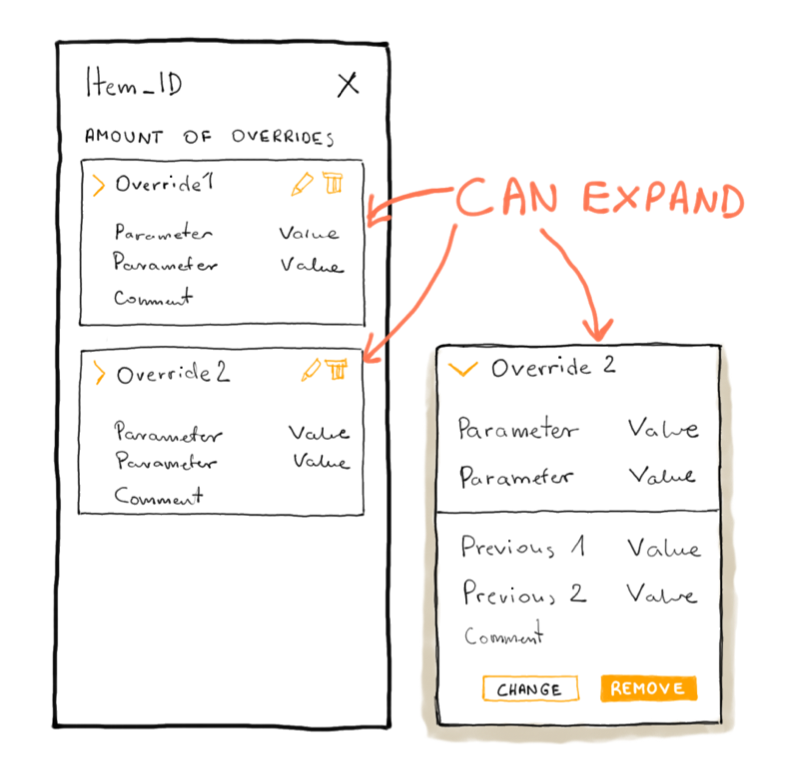 Item_ID X
AMOUNT OF OVERRIDES
Override 1
Parameter Value
Parameter Value
Comment
Override 2
Parameter Value
Parameter Value
Comment
CAN EXPAND
Override 2
Parameter Value
Parameter Value
Previous 1 Value
Previous 2 Value
Comment
CHANGE REMOVE